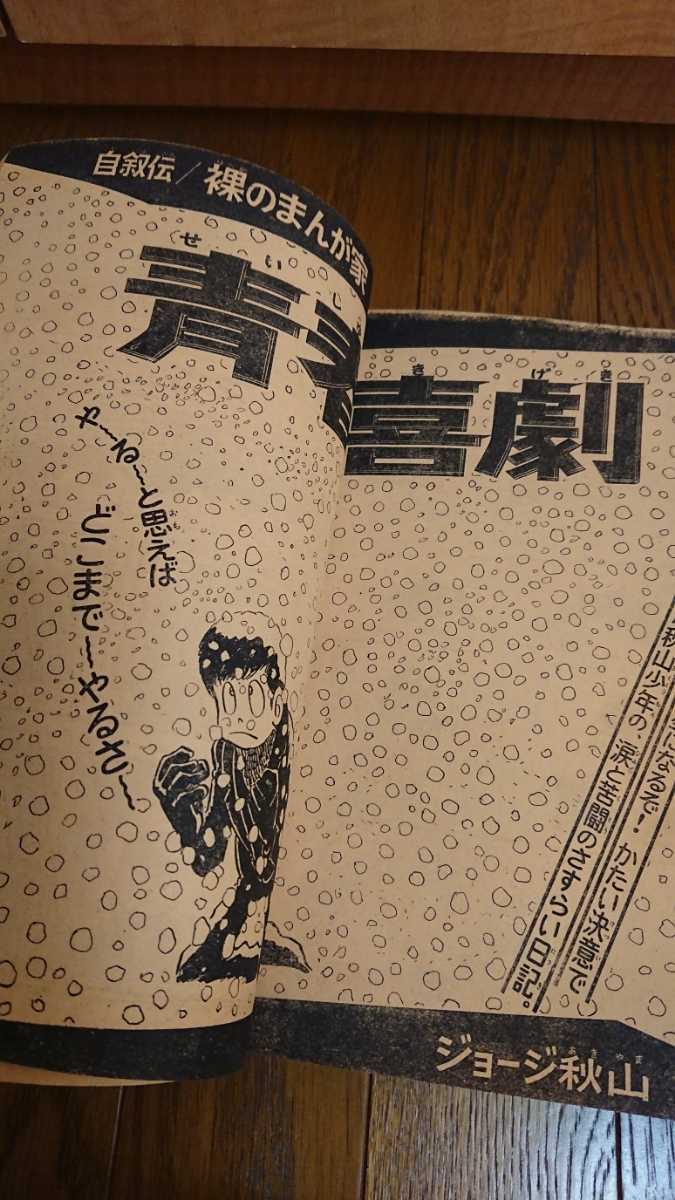 自叙伝/裸のまんが家
せいし
青春喜劇
きげき
や〜る〜と思えば
おも
どこまで〜やるさ〜
になるぞ! かたい決意で
秋山少年の、涙と苦闘のさすらい日記。
ジョージ秋山
あきやま